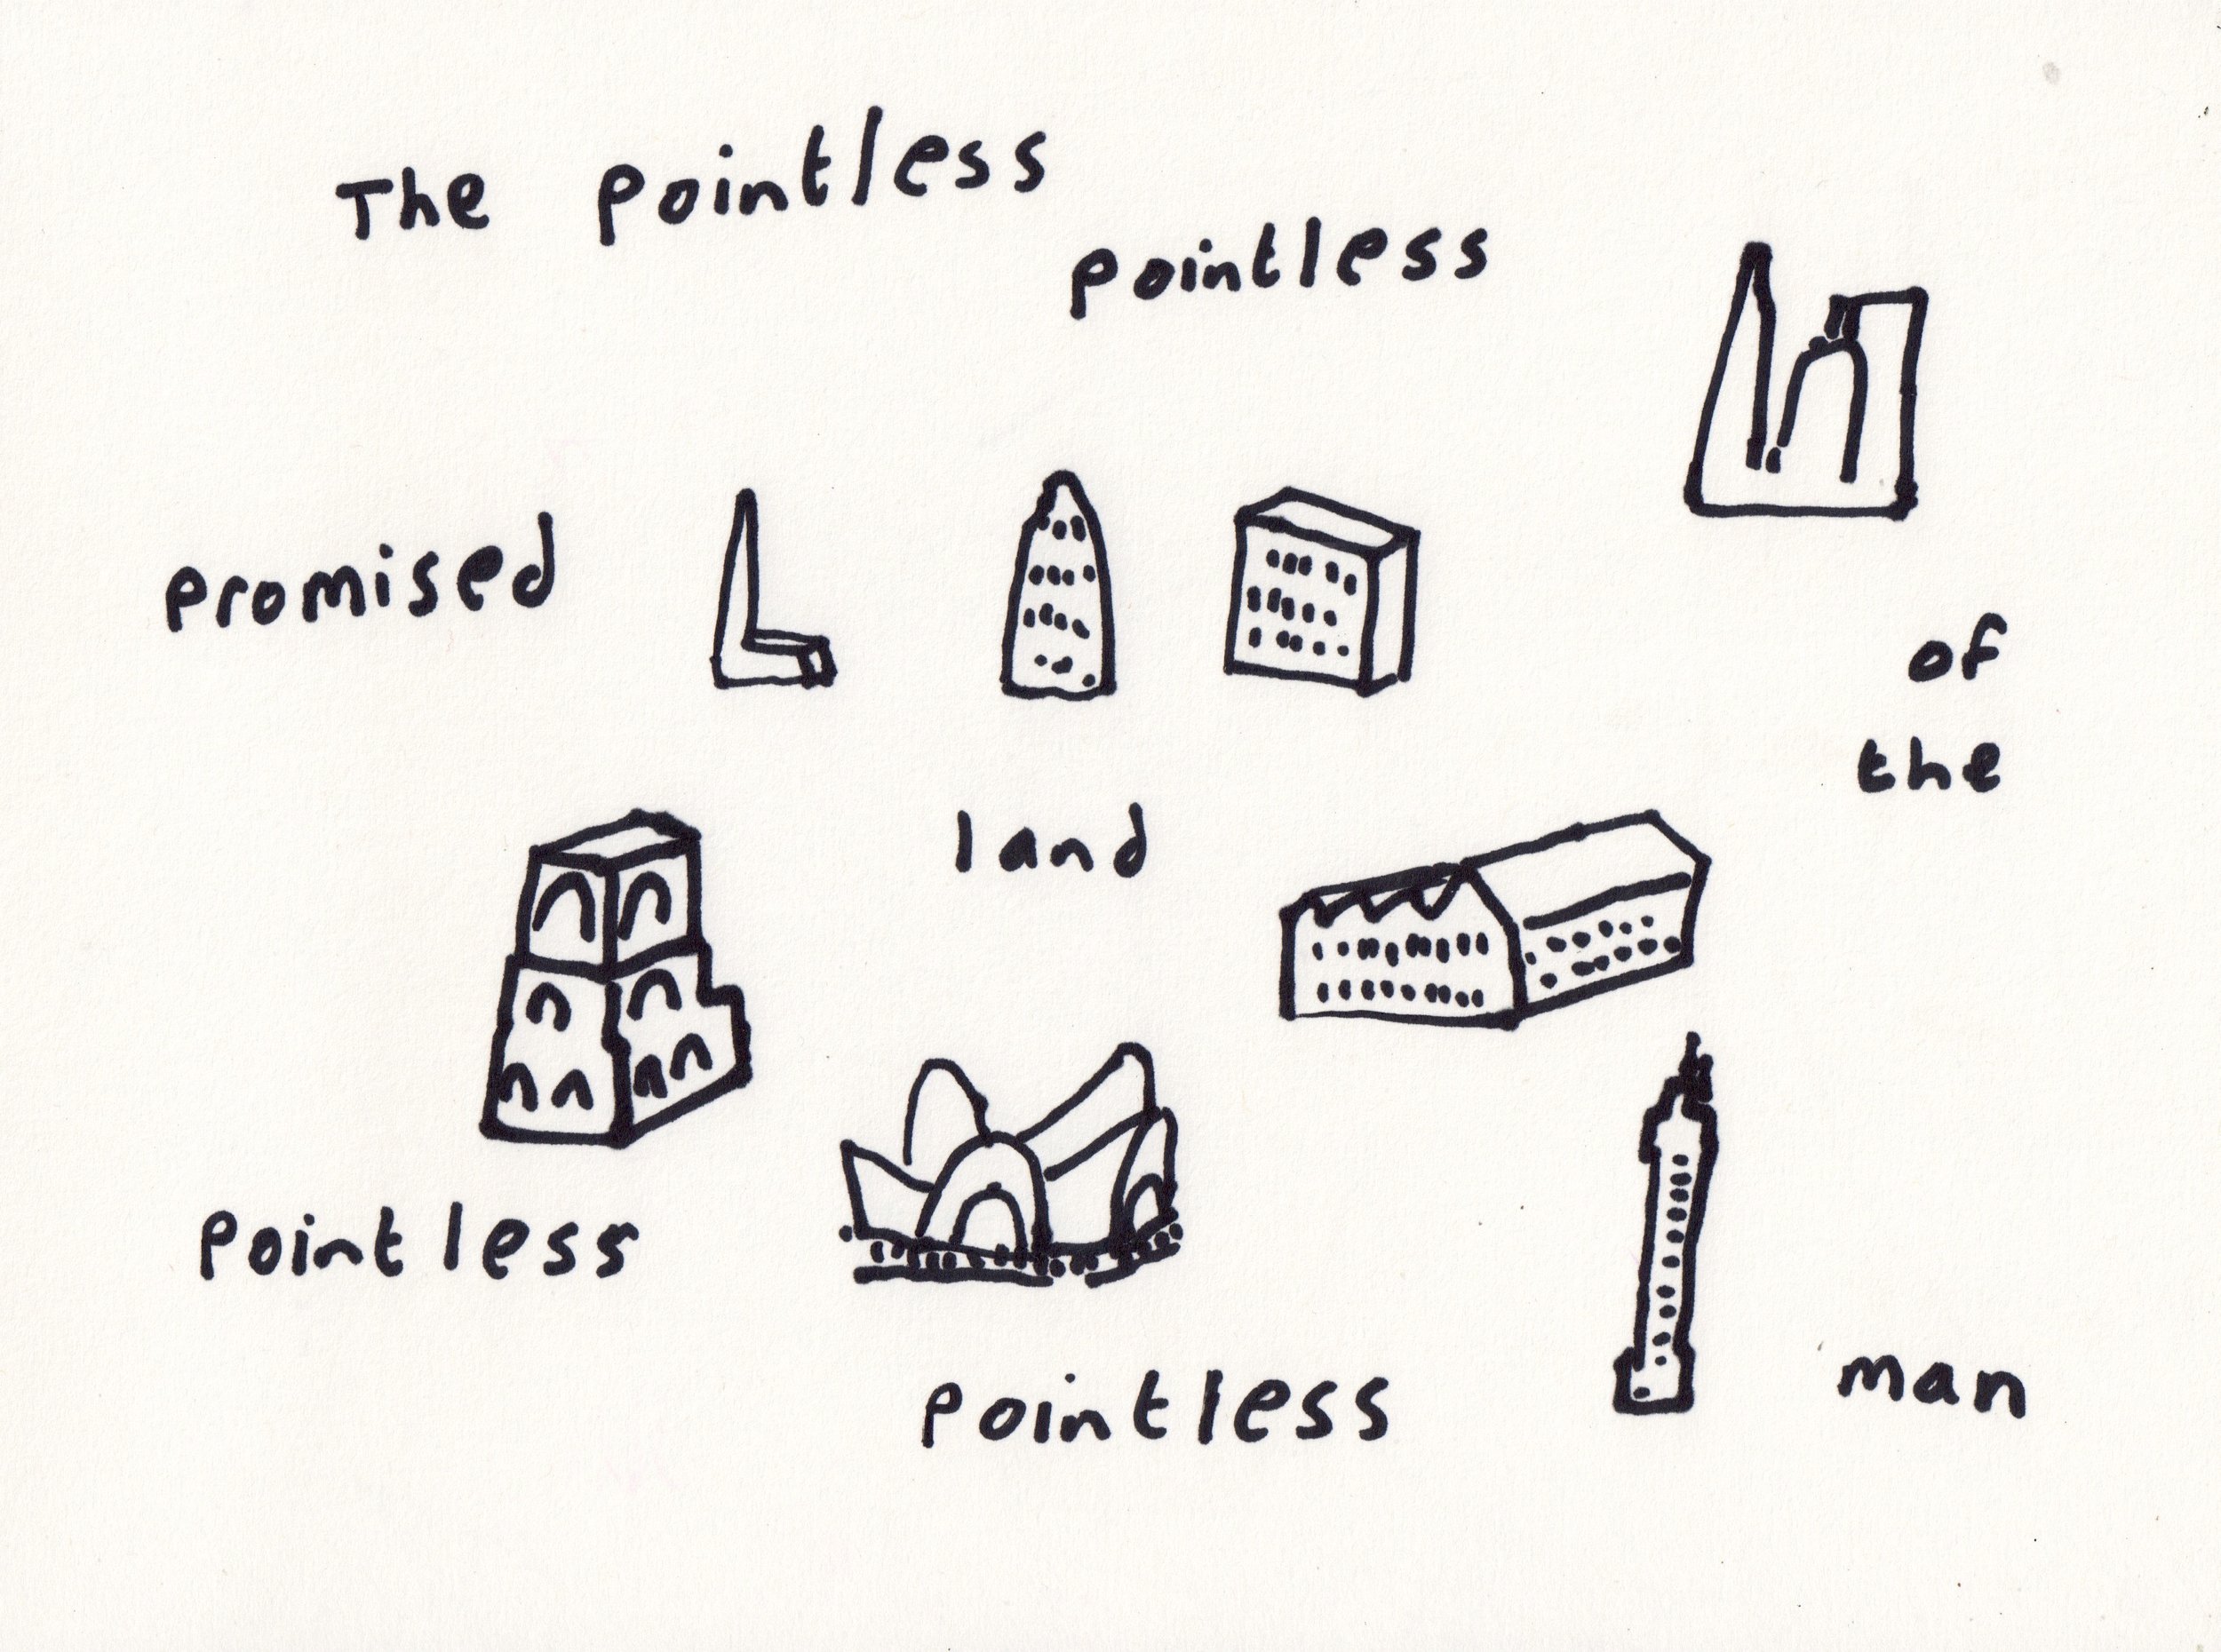 The pointless
pointless
promised
land
of
the
pointless
pointless
man